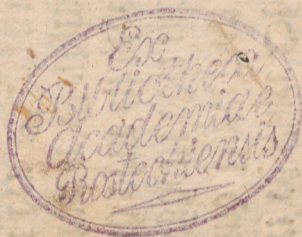 Ex
Bibliotheca
academiae
Rostochiensis